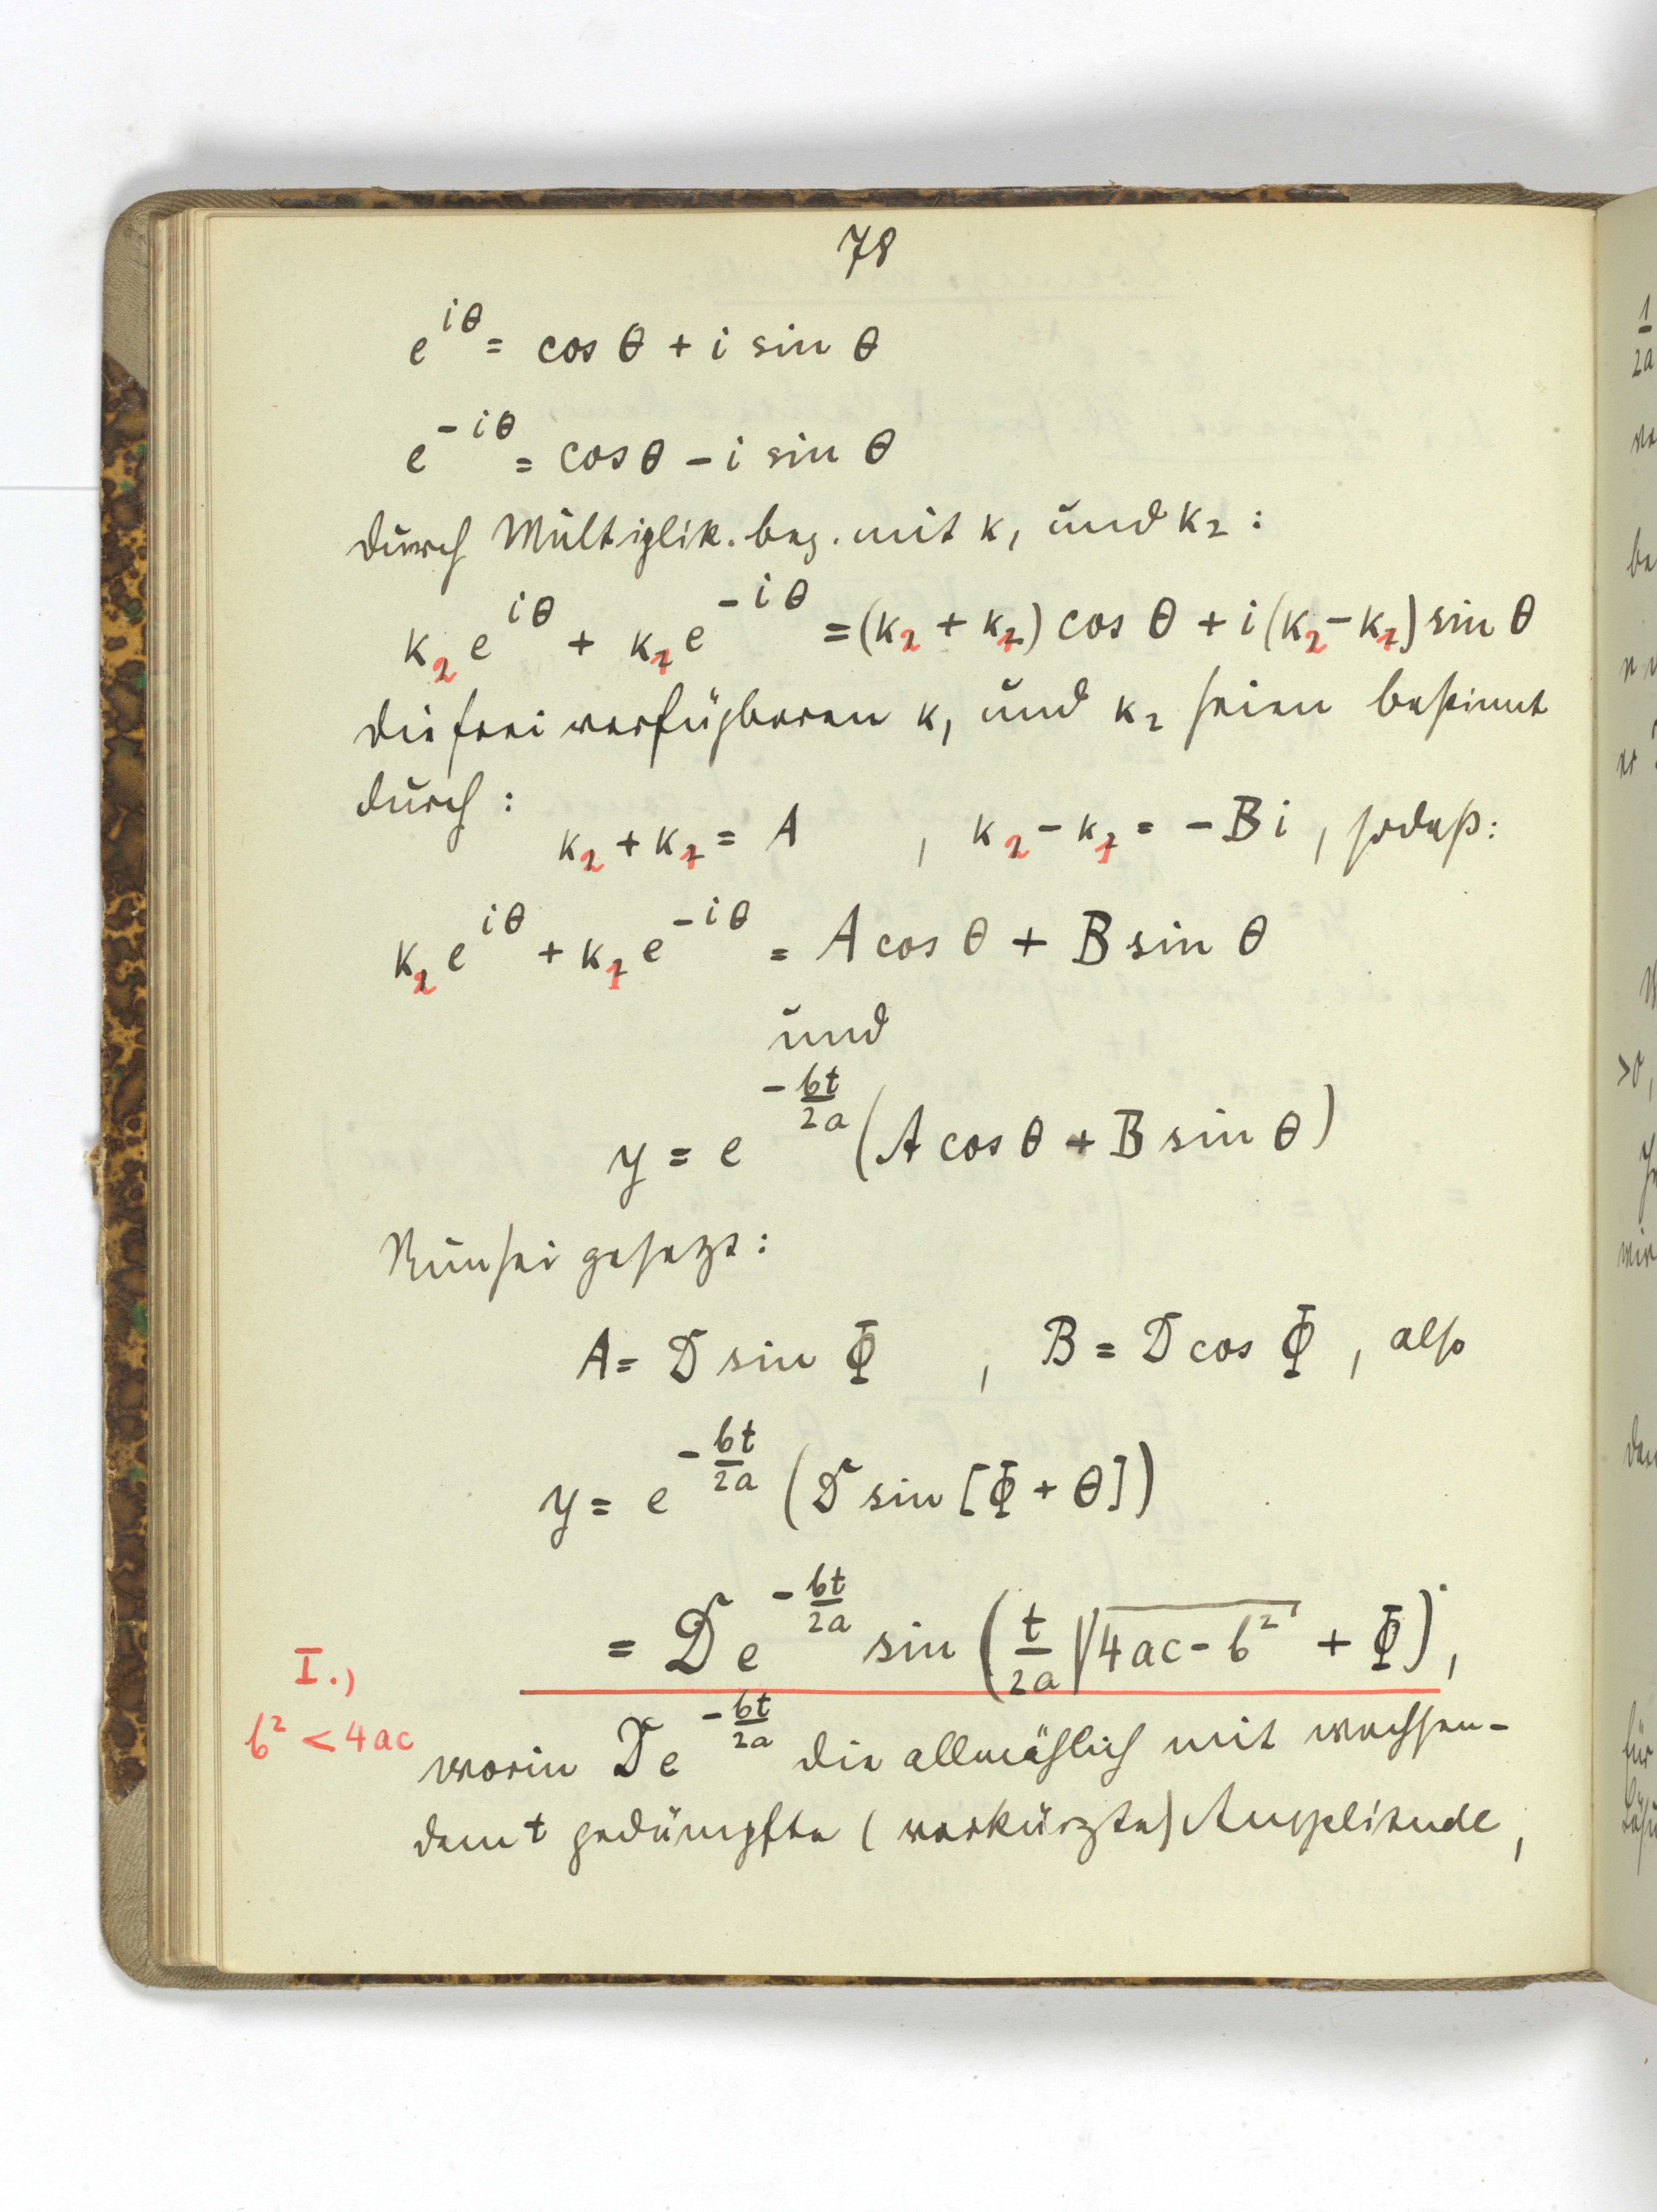 78
e^{iθ} = cos θ + i sin θ
e^{-iθ} = cos θ - i sin θ
durch Multiplik. bez. mit k₁ und k₂ :
k₂ e^{iθ} + k₁ e^{-iθ} = (k₂ + k₁) cos θ + i (k₂ - k₁) sin θ
die frei verfügbaren k₁ und k₂ seien bestimmt
durch :
k₂ + k₁ = A , k₂ - k₁ = - B i , sodaß :
k₂ e^{iθ} + k₁ e^{-iθ} = A cos θ + B sin θ
und
y = e^{-bt/2a} (A cos θ + B sin θ)
Nun sei gesetzt :
A = D sin Φ , B = D cos Φ , also
y = e^{-bt/2a} (D sin [Φ + θ])
= D e^{-bt/2a} sin (t/2a √(4ac - b²) + Φ) ,
I.)
b² < 4ac
worin D e^{-bt/2a} die allmählich mit wachsen-
dem t gedämpfte (verkürzte) Amplitude ,